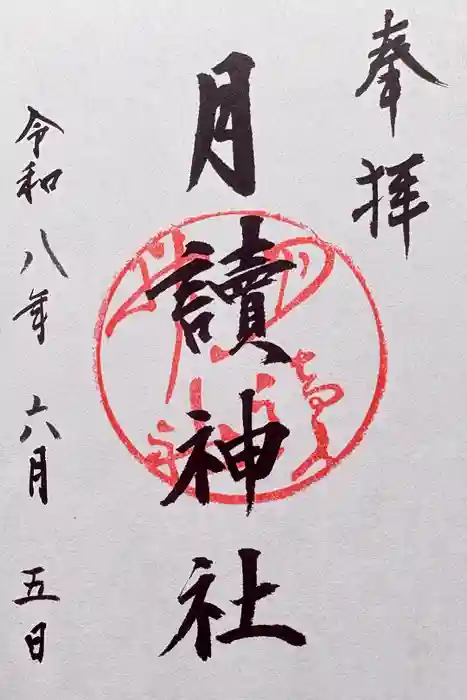 奉拝
月讀神社
令和八年 六月 五日